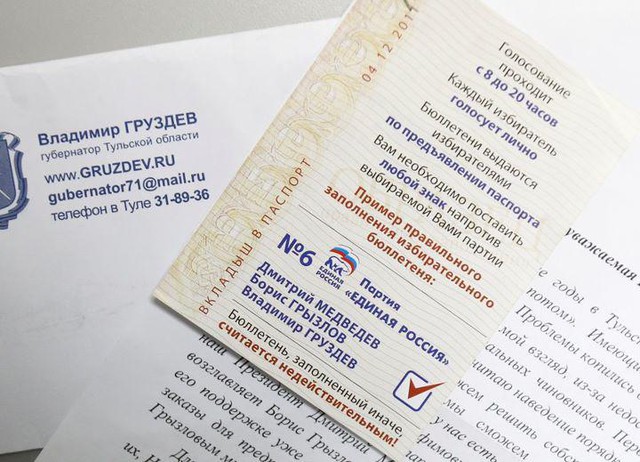 Владимир ГРУЗДЕВ
губернатор Тульской области
www.GRUZDEV.RU
gubernator71@mail.ru
телефон в Туле 31-89-36
04.12.2011
ВКЛАДЫШ В ПАСПОРТ
Голосование
проходит
с 8 до 20 часов
Каждый избиратель
голосует лично
Бюллетени выдаются
избирателями
по предъявлении паспорта
Вам необходимо поставить
любой знак напротив
выбираемой Вами партии
Пример правильного
заполнения избирательного
бюллетеня:
№6
ЕДИНАЯ
РОССИЯ
Партия
«ЕДИНАЯ РОССИЯ»
Дмитрий МЕДВЕДЕВ
Борис ГРЫЗЛОВ
Владимир ГРУЗДЕВ
Бюллетень, заполненный иначе,
считается недействительным!
уважаемая
годы в Тульс
потом». Имеющи
Проблемы копились
мой взгляд, из-за недо
альных чиновников. П
читаю наведение порядк
можем решить собс
мы сможем
у нас есть
наш Президент Дмитрий М
возглавляет Борис Грызло
его поддержке уже
заказы для пред
Грызловым
их, Н